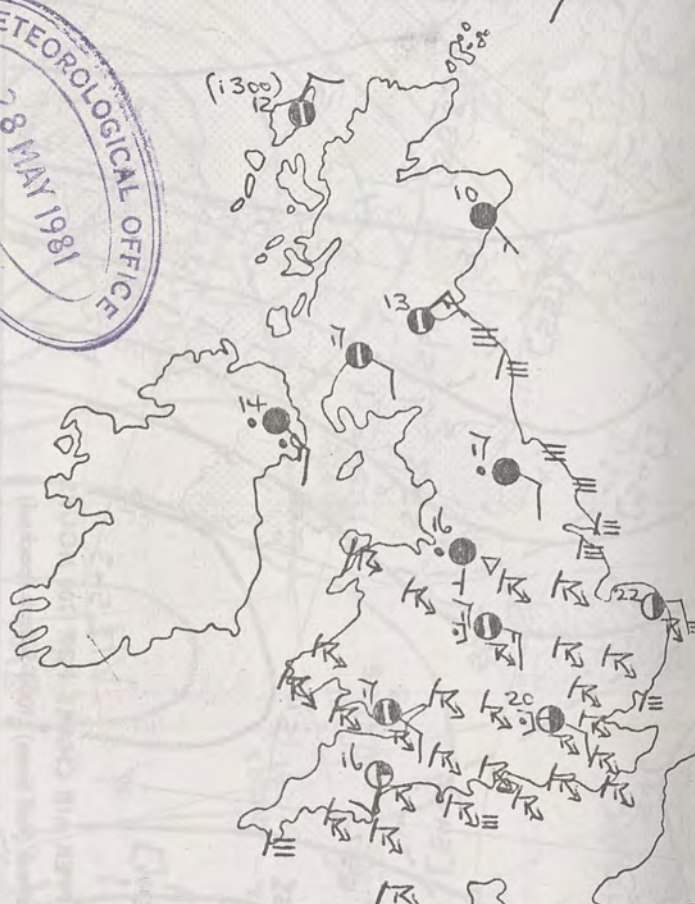 METEOROLOGICAL OFFICE
28 MAY 1981
(1300)
12
10
13
11
14
17
16
22
17
17
20
16